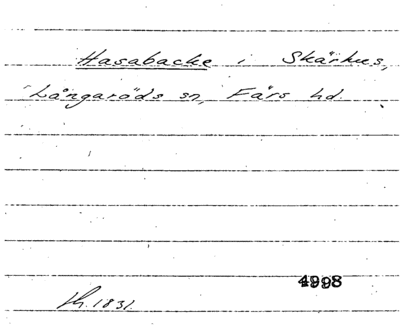 Hasabacke i Skärhus,
Långaröds sn, Färs hd.
4998
1831.